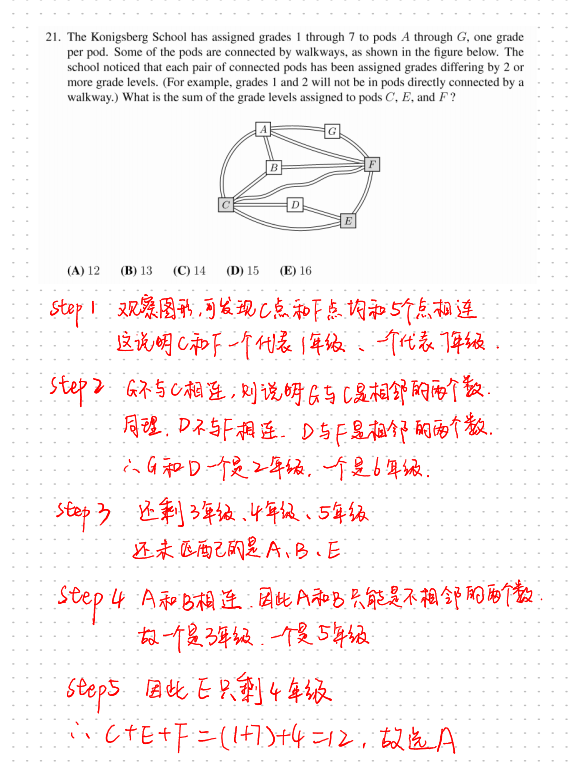 21. The Konigsberg School has assigned grades 1 through 7 to pods A through G, one grade
per pod. Some of the pods are connected by walkways, as shown in the figure below. The
school noticed that each pair of connected pods has been assigned grades differing by 2 or
more grade levels. (For example, grades 1 and 2 will not be in pods directly connected by a
walkway.) What is the sum of the grade levels assigned to pods C, E, and F?
A
G
B
F
C
D
E
(A) 12 (B) 13 (C) 14 (D) 15 (E) 16
Step 1 观察图形,可发现C点和F点均和5个点相连
这说明C和F一个代表1年级、一个代表7年级.
Step 2 G不与C相连,则说明G与C是相邻的两个数.
同理,D不与F相连.D与F是相邻的两个数.
∴G和D一个是2年级.一个是6年级.
Step 3 还剩3年级、4年级、5年级
还未匹配的是A、B、E
Step 4 A和B相连.因此A和B只能是不相邻的两个数.
故一个是3年级.一个是5年级
Step5 因此E只剩4年级
∴C+E+F=(1+7)+4=12,故选A